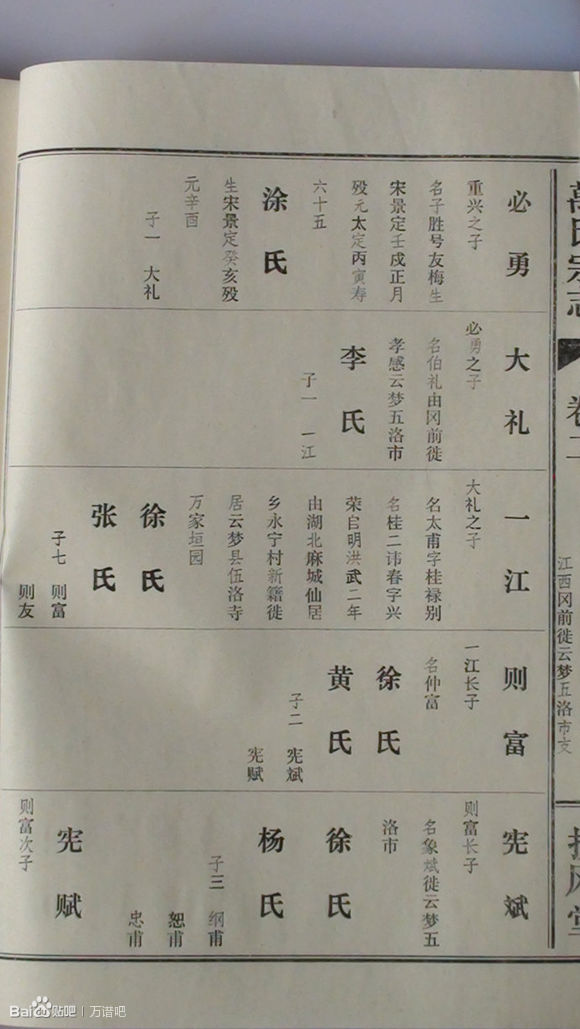 万氏宗志
卷二
江西冈前徙云梦五洛市支
扶风堂
必勇
重兴之子
名子胜号友梅生
宋景定壬戌正月
殁元太定丙寅寿
六十五
涂氏
生宋景定癸亥殁
元辛酉
子一 大礼
大礼
必勇之子
名伯礼由冈前徙
孝感云梦五洛市
李氏
子一 一江
一江
大礼之子
名太甫字桂禄别
名桂二讳春字兴
荣自明洪武二年
由湖北麻城仙居
乡永宁村新籍徙
居云梦县伍洛寺
万家垣园
徐氏
张氏
子七 则富
则友
则富
一江长子
名仲富
徐氏
黄氏
子二 宪斌
宪赋
宪斌
则富长子
名象斌徙云梦五
洛市
徐氏
杨氏
子三 纲甫
恕甫
忠甫
宪赋
则富次子
Baidu贴吧 | 万谱吧